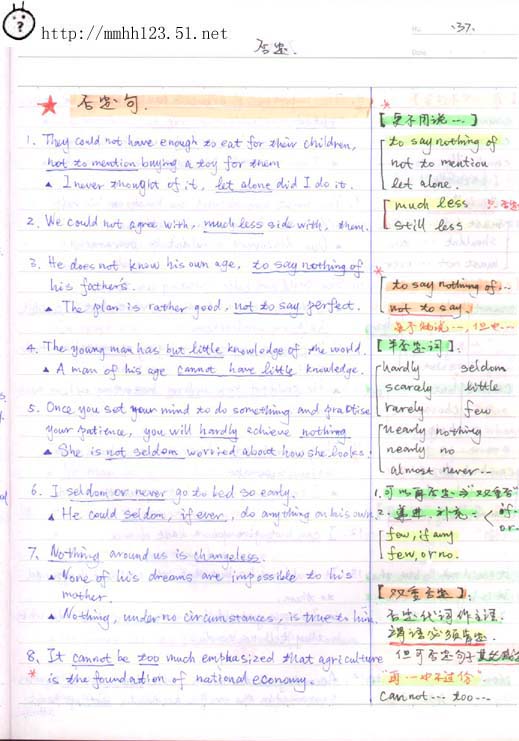 http://mmhh123.51.net
No. -37.
Date
否定.
★ 否定句.
1. They could not have enough to eat for their children,
not to mention buying a toy for them
▲ I never thought of it, let alone did I do it.
2. We could not agree with, much less side with, them.
3. He does not know his own age, to say nothing of
his father's.
▲ The plan is rather good, not to say perfect.
4. The young man has but little knowledge of the world.
▲ A man of his age cannot have little knowledge.
5. Once you set your mind to do something and practise
your patience, you will hardly achieve nothing
▲ She is not seldom worried about how she looks.
6. I seldom or never go to bed so early.
▲ He could seldom, if ever, do anything on his own.
7. Nothing around us is changeless.
▲ None of his dreams are impossible to his
mother.
▲ Nothing, under no circumstances, is true to him.
8. It cannot be too much emphasized that agriculture
* is the foundation of national economy.
*
【更不用说…】
to say nothing of
not to mention
let alone.
much less
still less
*
to say nothing of...
not to say.
【半否定词】:
hardly seldom
scarely little
rarely few
nearly nothing
nearly no
almost never..
1. 可以再否定→"双重否"
2. 补充:
few, if any
few, or no.
【双重否定】:
否定代词作主语.
谓语必须肯定.
但可否定句子其它
"再…也不过份"
cannot... too...